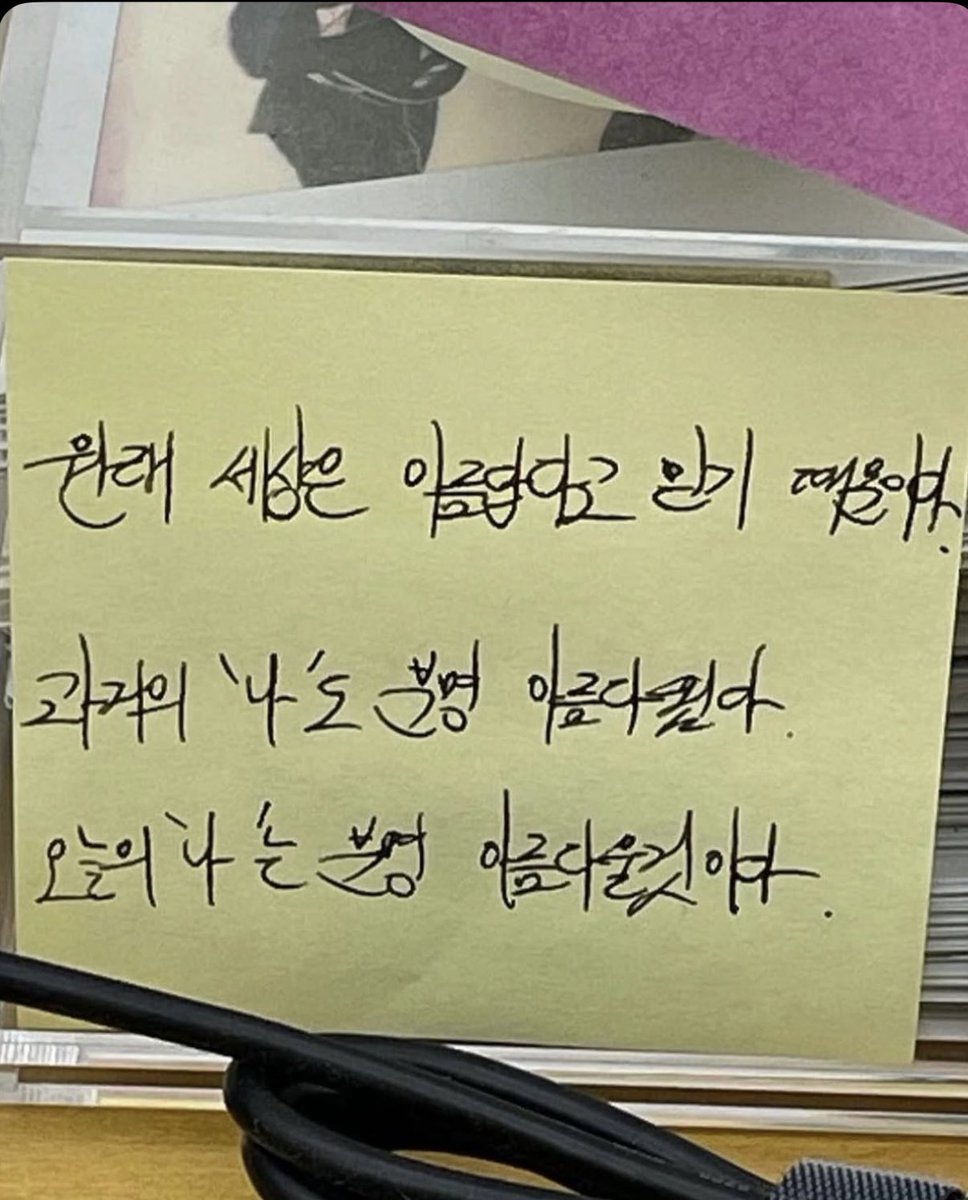 원래 세상은 아름답다고 믿기 때문이야.
과거의 '나'도 분명 아름다웠다.
오늘의 '나'는 분명 아름다울것이야.